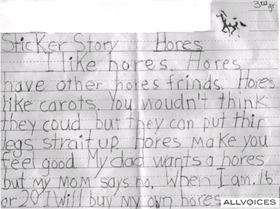 3rd gr
Sticker Story Hores
I like hores. Hores
have other hores frinds. Hores
like carots. You woudn't think
they coud but they can put thir
legs strait up. Hores make you
feel good. My dad wants a hores
but my mom says no, when I am 16
or 20 I will buy my own hores
ALLVOICES